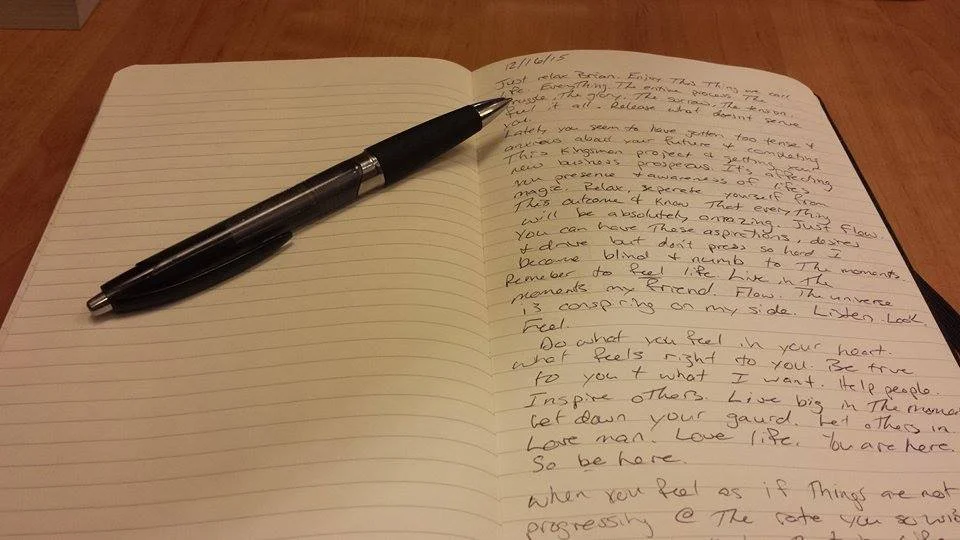 12/16/15
Just relax Brian. Enjoy This Thing we call
life. Everything. The entire process. The
struggle. The glory. The sorrow. The tension.
Feel it all. Release what doesnt serve
you.
Lately you seem to have gotten too tense +
anxious about your future + completing
This Kingsmen project + getting
new business prosperous. It's affecting
you presence + awareness of life's
magic. Relax, seperete yourself from
This outcome + Know That everything
will be absolutely amazing. Just Flow.
You can have These aspirations, desires
+ drive but don't press so hard I
become blind + numb to The moments.
Remeber to feel life. Live in The
moments my friend. Flow. The universe
is conspiring on my side. Listen. Look.
Feel.
Do what you feel in your heart.
what feels right to you. Be true
to you + what I want. Help people.
Inspire others. Live big in The momen
Let down your gaurd. Let others in.
Love man. Love life. You are here.
So be here.
when you feel as if Things are not
progressing @ The rate you so